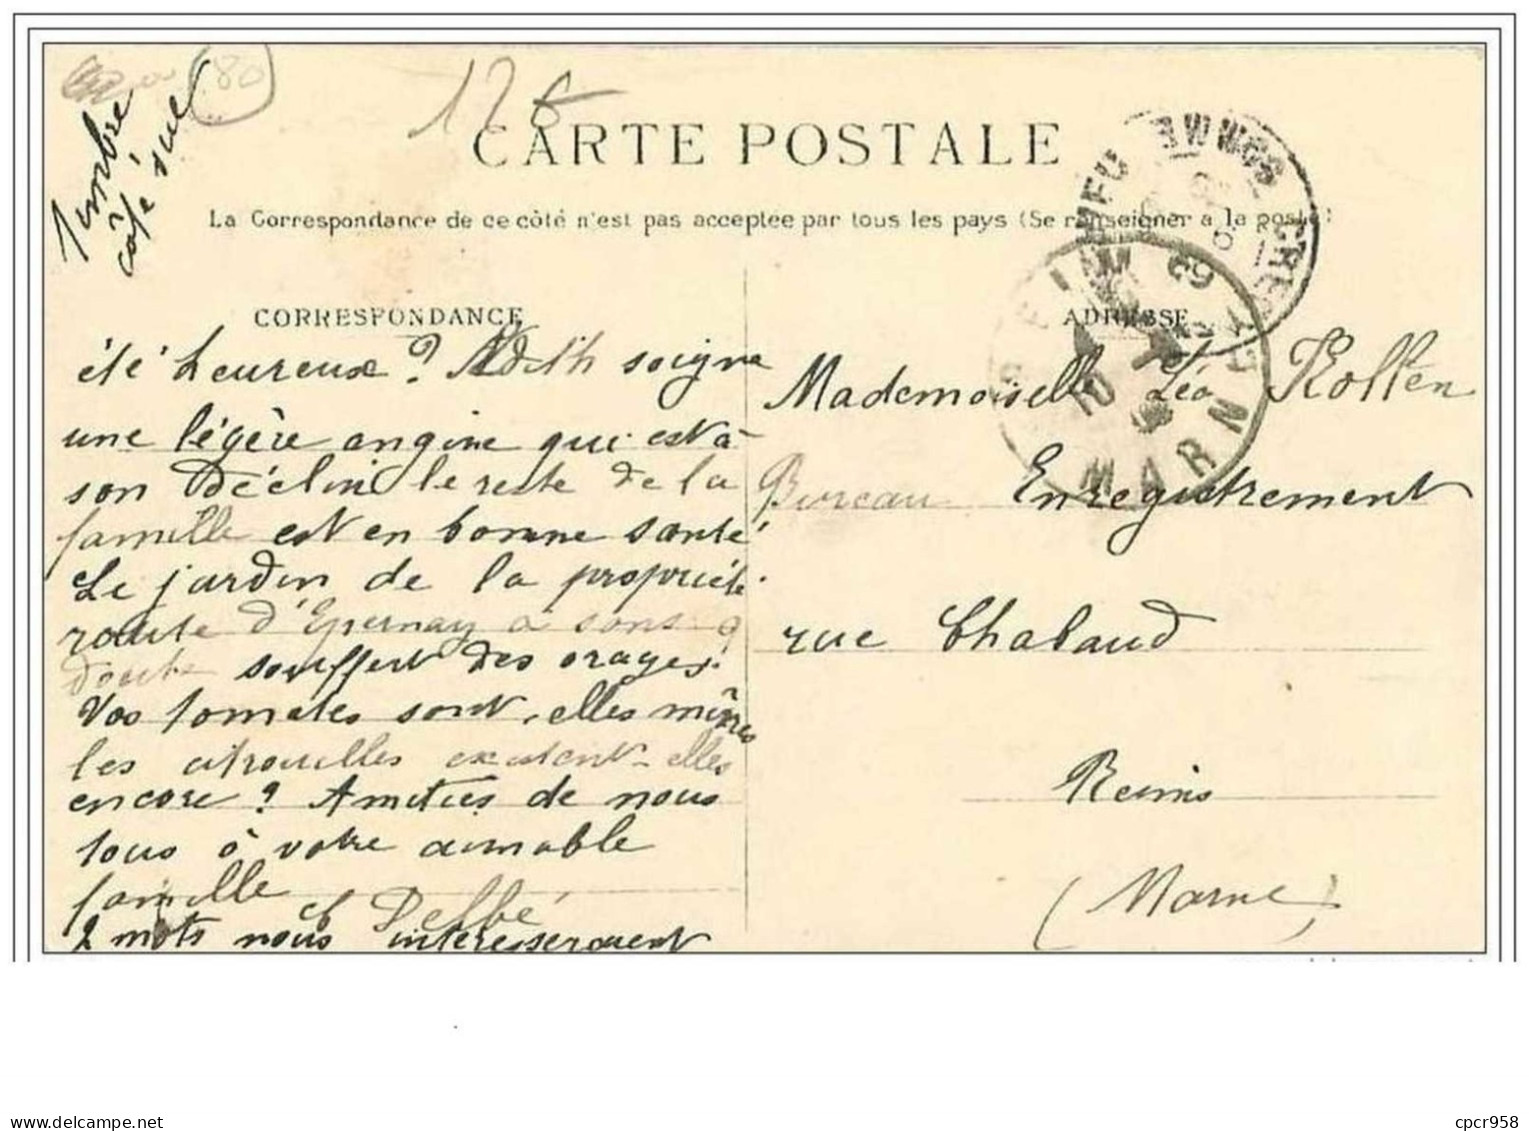 80
Timbre
côté vue
CARTE POSTALE
La Correspondance de ce côté n'est pas acceptée par tous les pays (Se renseigner a la poste)
CORRESPONDANCE
été heureux? Edith soigne
une légère angine qui est à
son déclin le reste de la
famille est en bonne santé
Le jardin de la propriété
route d'Epernay a sans
doute souffert des orages.
Vos tomates sont-elles mûres
les citrouilles existent-elles
encore? Amitiés de nous
tous à votre aimable
famille
Delbé
2 mots nous intéresseraient
ADRESSE
Mademoiselle Léa Rolten
Bureau Enregistrement
rue Chabaud
Reims
(Marne)
SOMME
REIMS
MARNE
cpcr958